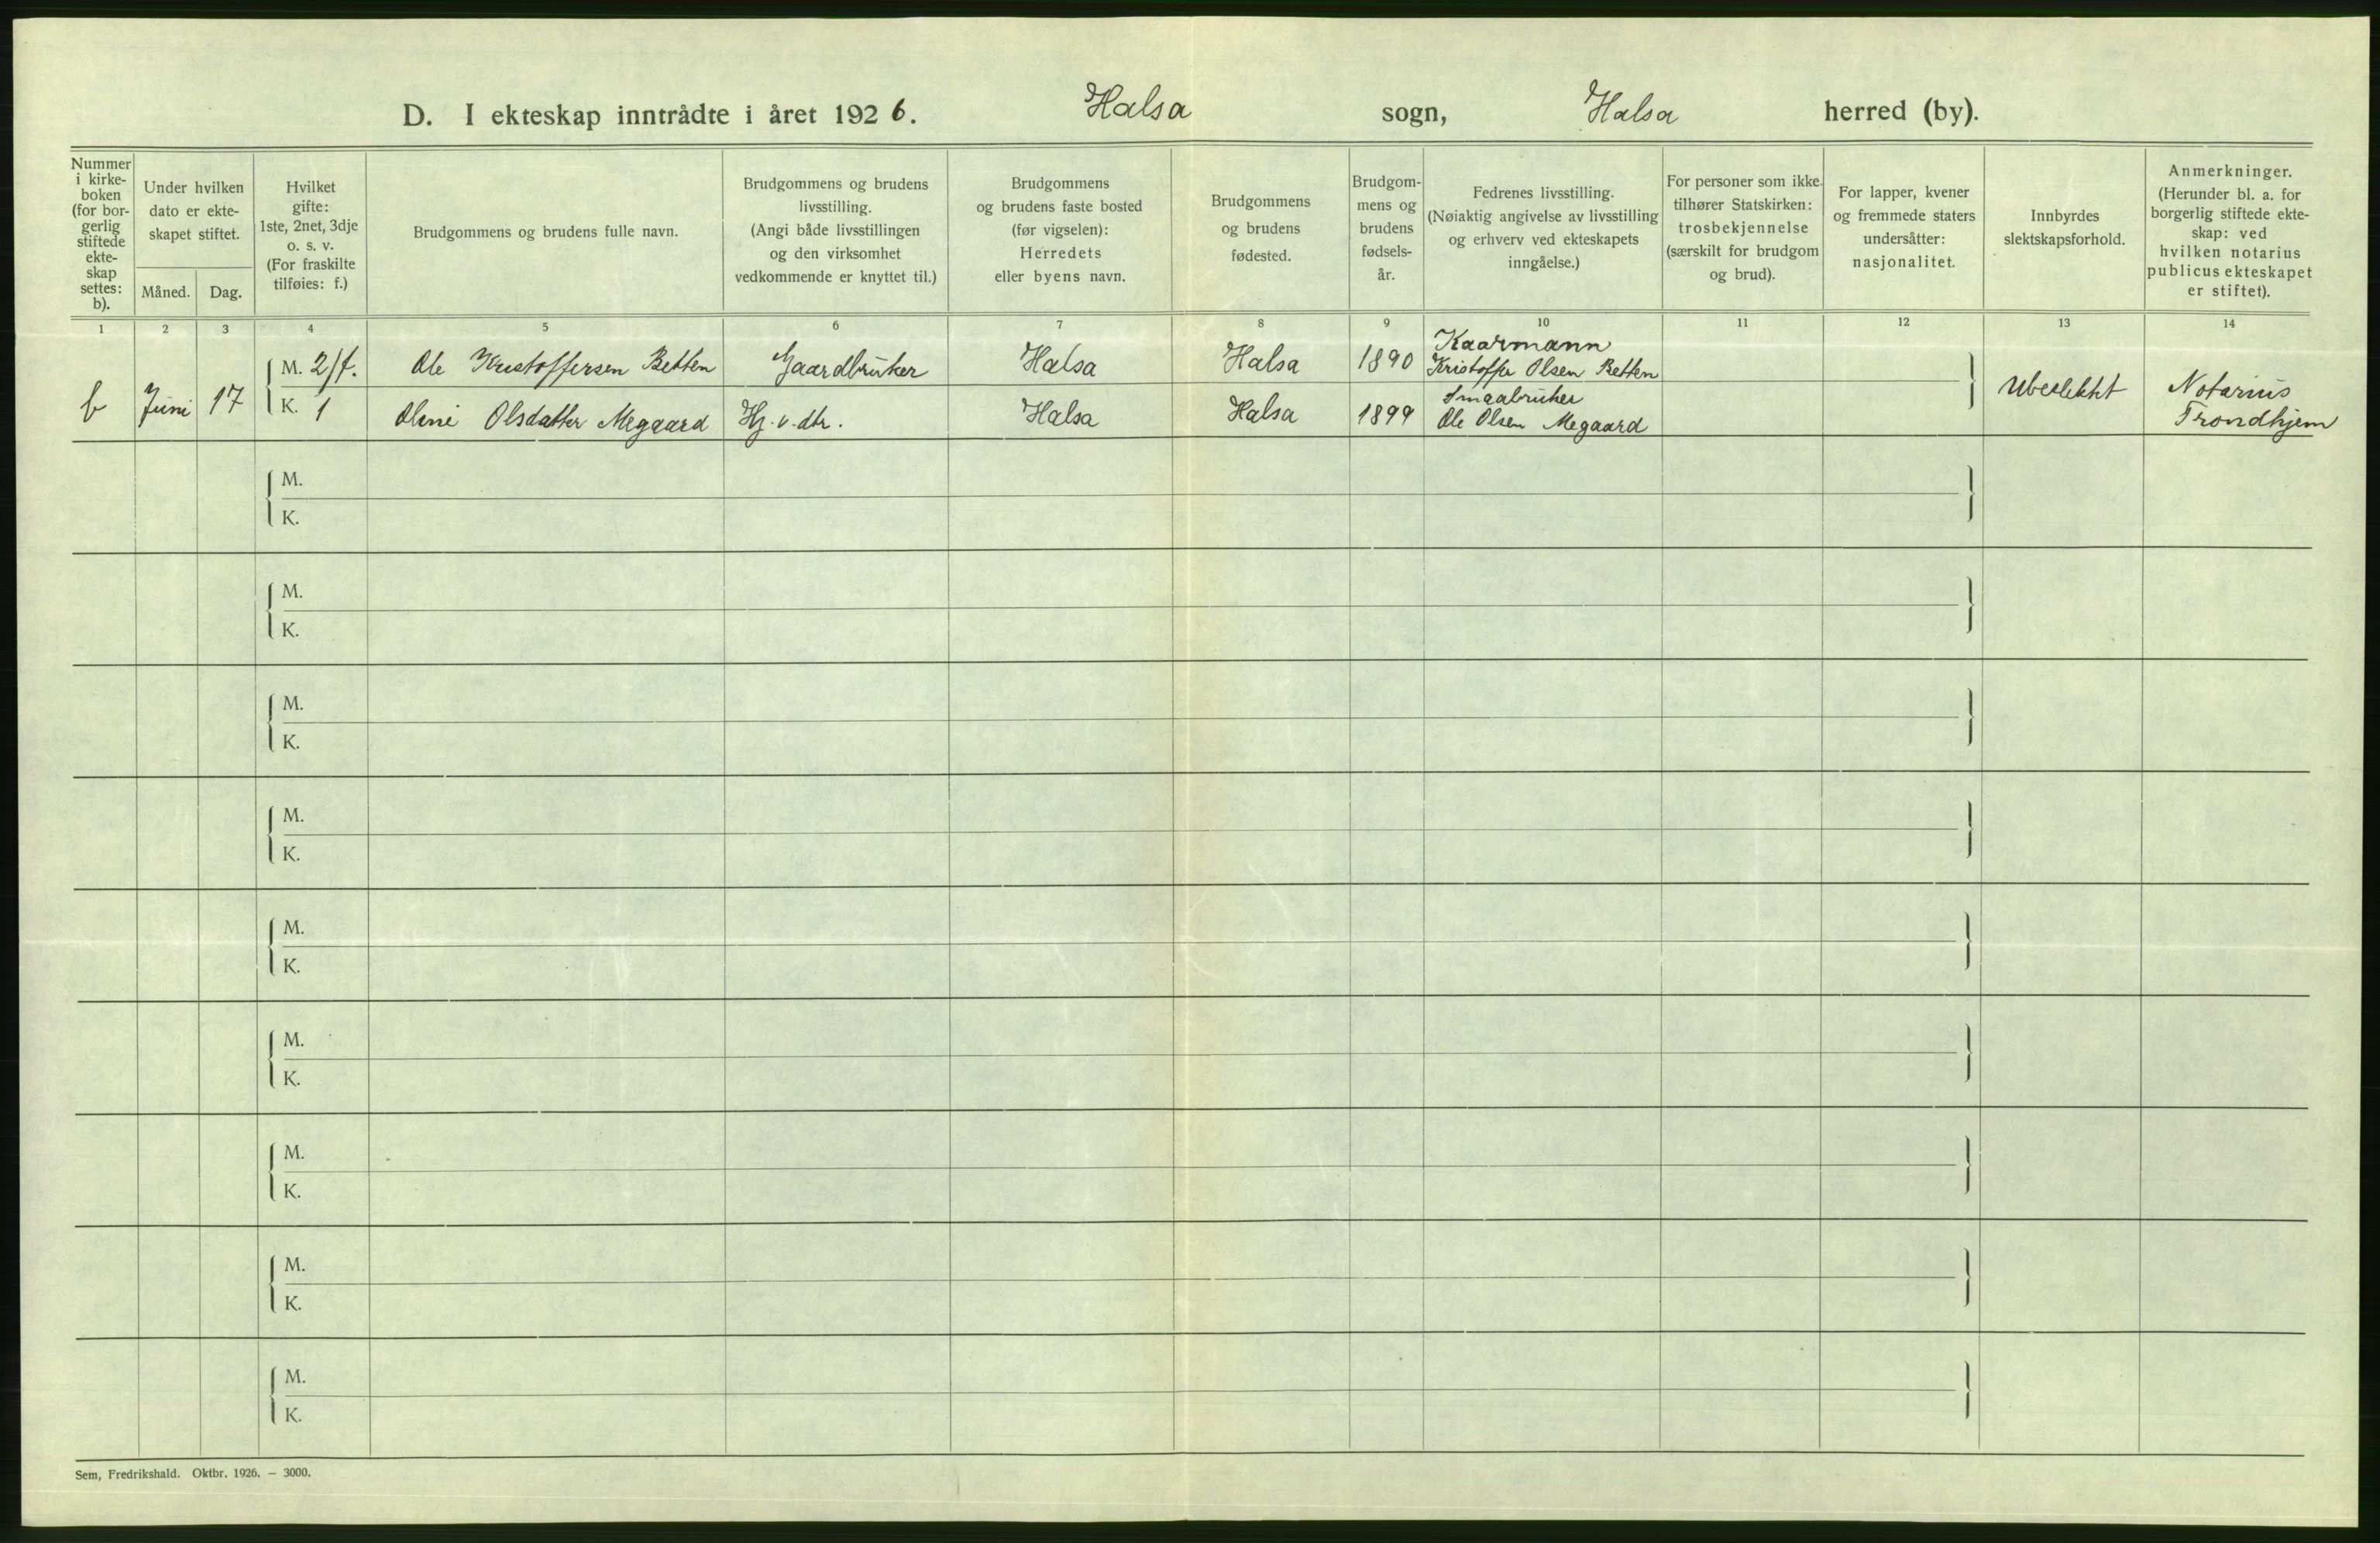 D. I ekteskap inntrådte i året 1926. Halsa sogn, Halsa herred (by).
Nummer
i kirke-
boken
(for bor-
gerlig
stiftede
ekte-
skap
settes:
b).
Under hvilken
dato er ekte-
skapet stiftet.
Måned.
Dag.
Hvilket
gifte:
1ste, 2net, 3dje
o. s. v.
(For fraskilte
tilføies: f.)
Brudgommens og brudens fulle navn.
Brudgommens og brudens
livsstilling.
(Angi både livsstillingen
og den virksomhet
vedkommende er knyttet til.)
Brudgommens
og brudens faste bosted
(før vigselen):
Herredets
eller byens navn.
Brudgommens
og brudens
fødested.
Brudgom-
mens og
brudens
fødsels-
år.
Fedrenes livsstilling.
(Nøiaktig angivelse av livsstilling
og erhverv ved ekteskapets
inngåelse.)
For personer som ikke
tilhører Statskirken:
trosbekjennelse
(særskilt for brudgom
og brud).
For lapper, kvener
og fremmede staters
undersåtter:
nasjonalitet.
Innbyrdes
slektskapsforhold.
Anmerkninger.
(Herunder bl. a. for
borgerlig stiftede ekte-
skap: ved
hvilken notarius
publicus ekteskapet
er stiftet).
1 2 3 4 5 6 7 8 9 10 11 12 13 14
b Juni 17
M. 2/f. Ole Kristoffersen Betten Gaardbruker Halsa Halsa 1890 Kaarmann
Kristoffer Olsen Betten
K. 1 Oline Olsdatter Megaard Hj. v. dtr. Halsa Halsa 1899 Smaabruker
Ole Olsen Megaard
Ubeslektet
Notarius
Trondhjem
M.
K.
M.
K.
M.
K.
M.
K.
M.
K.
M.
K.
M.
K.
M.
K.
M.
K.
Sem, Fredrikshald. Oktbr. 1926. — 3000.